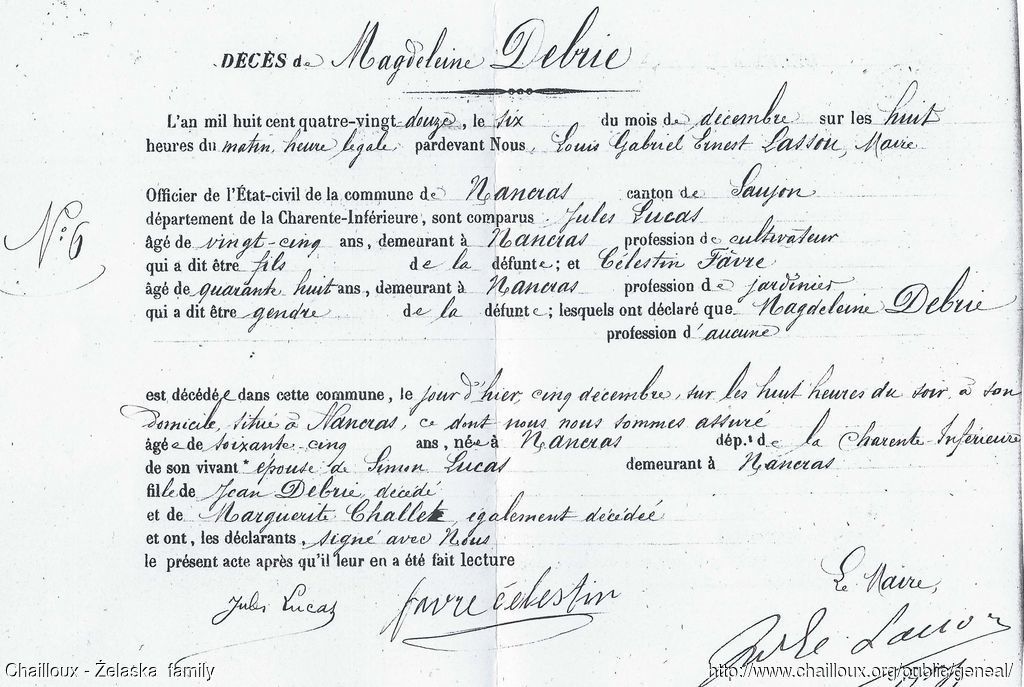 DÉCÈS de Magdeleine Debrie
L'an mil huit cent quatre-vingt-douze, le six du mois de décembre sur les huit
heures du matin, heure légale pardevant Nous, Louis Gabriel Ernest Lassou, Maire
Officier de l'État-civil de la commune de Nancras canton de Saujon
département de la Charente-Inférieure, sont comparus Jules Lucas
N.º 6
âgé de vingt-cinq ans, demeurant à Nancras profession de cultivateur
qui a dit être fils de la défunte; et Célestin Fâvre
âgé de quarante huit ans, demeurant à Nancras profession de jardinier
qui a dit être gendre de la défunte; lesquels ont déclaré que Magdeleine Debrie
profession d'aucune
est décédée dans cette commune, le jour d'hier, cinq décembre, sur les huit heures du soir, à son
domicile, situé à Nancras, ce dont nous nous sommes assuré
âgée de soixante-cinq ans, née à Nancras dép.t de la Charente-Inférieure
de son vivant épouse de Simon Lucas demeurant à Nancras
fille de Jean Debrie, décédé
et de Marguerite Challet, également décédée
et ont, les déclarants, signé avec Nous
le présent acte après qu'il leur en a été fait lecture
Le Maire,
Jules Lucas favre célestin
Lassou
Chailloux - Żelaska family http://www.chailloux.org/public/geneal/